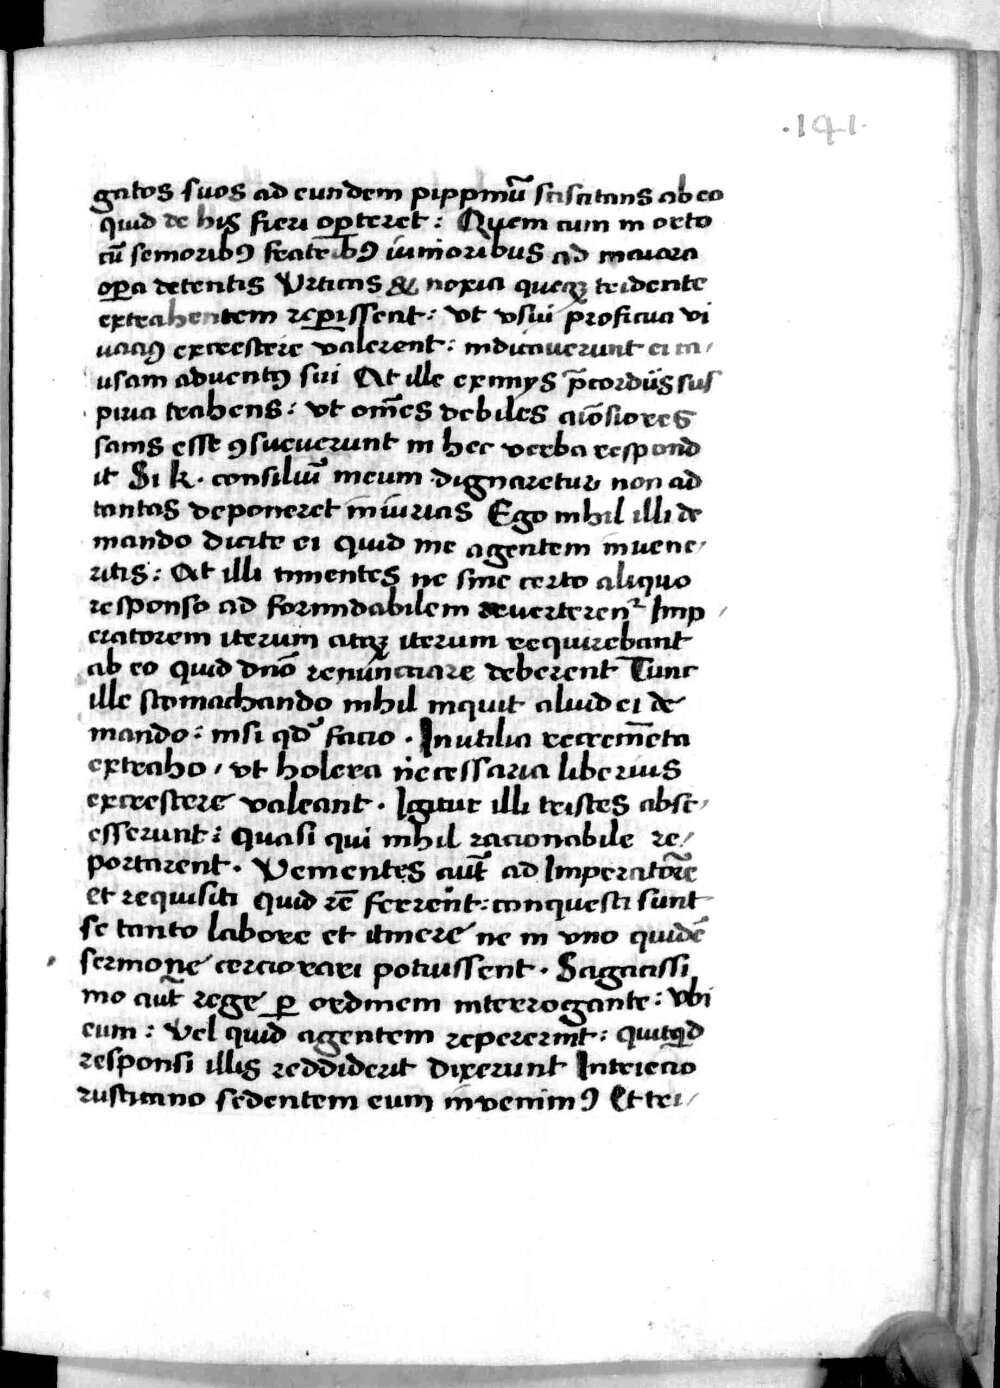 .141.
gatos suos ad eundem pippinū scissitans ab eo
quid de his fieri op̱teret: Quem cum in orto
cū senioribꝰ fratribꝰ iunioribus ad maiora
op̱a detentis Vrticas & noxia queqꝫ tridente
extrahentem rep̱issent: vt vsui proficua vi
uaciꝰ excrescere valerent: indicauerunt ei ca/
usam aduentꝰ sui At ille eximys p̄cordiis sus
piria trahens: vt om̄es debiles aīosiores
sanis esse ꝯsueuerunt in hec verba respond
it Si k. consiliū meum dignaretur non ad
tantas deponeret iniurias Ego nihil illi de
mando dicite ei quid me agentem inuene/
ritis: At illi timentes ne sine certo aliquo
responso ad formidabilem reuerteren̄ Imp/
eratorem iterum atqꝫ iterum requirebant
ab eo quid dn̄o renunciare deberent Tunc
ille stomachando nihil inquit aliud ei de
mando: nisi qd̄ facio. Inutilia recrem̄eta
extraho / vt holera necessaria liberius
excrescere valeant. Igitur illi tristes absc/
esserunt: quasi qui nihil racionabile re/
portarent. Venientes aūt ad Imperatorē
et requisiti quid rē ferrent: conquesti sunt
se tanto labore et itinere ne in vno quidē
sermone cerciorari potuissent. Sagacissi
mo aūt rege p̱ ordinem interrogante: vbi
eum: Vel quid agentem repererint: quitqd
responsi illis reddiderit dixerunt Inteiecio
rusticano sedentem eum inuenimꝰ Et tri/